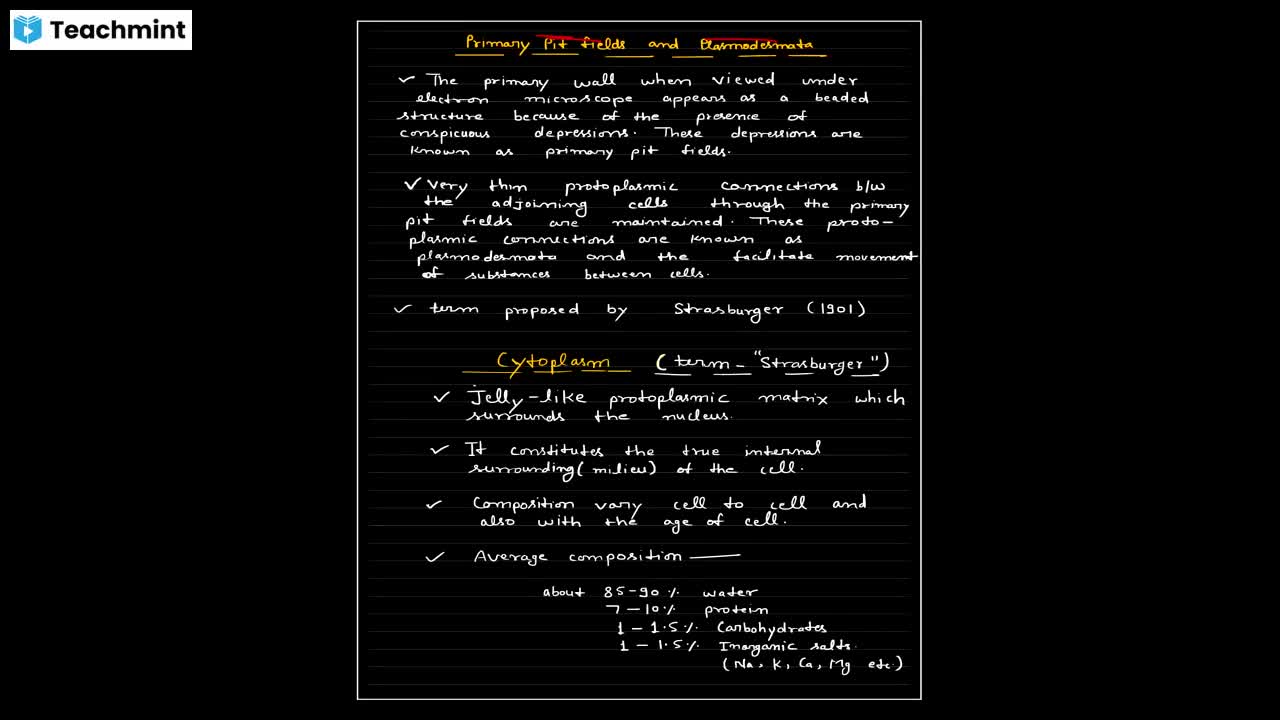 Teachmint
Primary Pit fields and Plasmodesmata
✓ The primary wall when viewed under
electron microscope appears as a beaded
structure because of the presence of
conspicuous depressions. These depressions are
known as primary pit fields.
✓ Very thin protoplasmic connections b/w
the adjoining cells through the primary
pit fields are maintained. These proto-
plasmic connections are known as
plasmodesmata and the facilitate movement
of substances between cells.
✓ term proposed by Strasburger (1901)
Cytoplasm (term - "Strasburger")
✓ Jelly-like protoplasmic matrix which
surrounds the nucleus.
✓ It constitutes the true internal
surrounding (milieu) of the cell.
✓ Composition vary cell to cell and
also with the age of cell.
✓ Average composition —
about 85-90% water
7-10% protein
1-1.5% Carbohydrates
1-1.5% Inorganic salts.
(Na, K, Ca, Mg etc.)